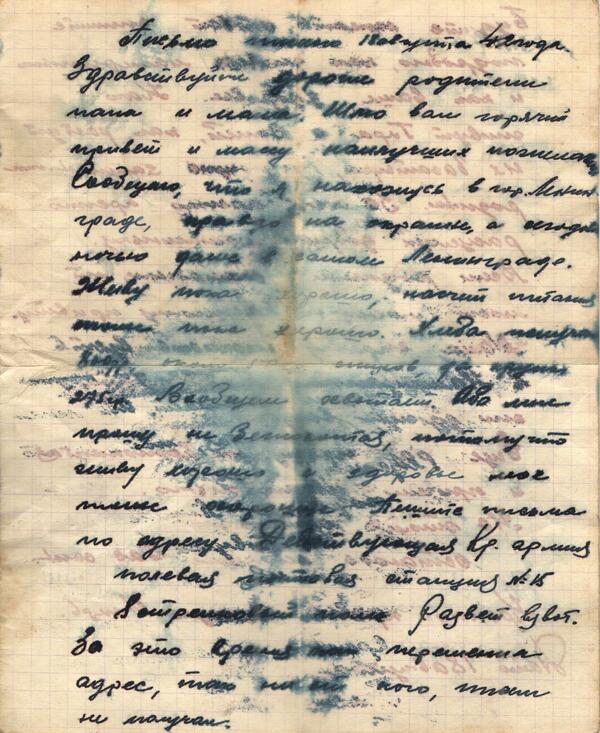 Письмо писано 18 августа 41 года.
Здравствуйте дорогие родители
папа и мама. Шлю вам горячий
привет и массу наилучших пожелан
Сообщаю, что я нахожусь в гор. Ленин
граде, правда на окраине, а сегодня
ночью даже в самом Ленинграде.
Живу пока хорошо, насчет питания
тоже пока хорошо. Хлеба
275 гр. Вообщем хватает. Обо мне
прошу не беспокоится, потому что
живу хорошо и здоровье мое
тоже хорошее. Пишите письма
по адресу Действующая Кр. армия
полевая почтовая станция № 15
8 стрелковый полк Развет взвот.
За это время
адрес, так ни от кого, писем
не получал.